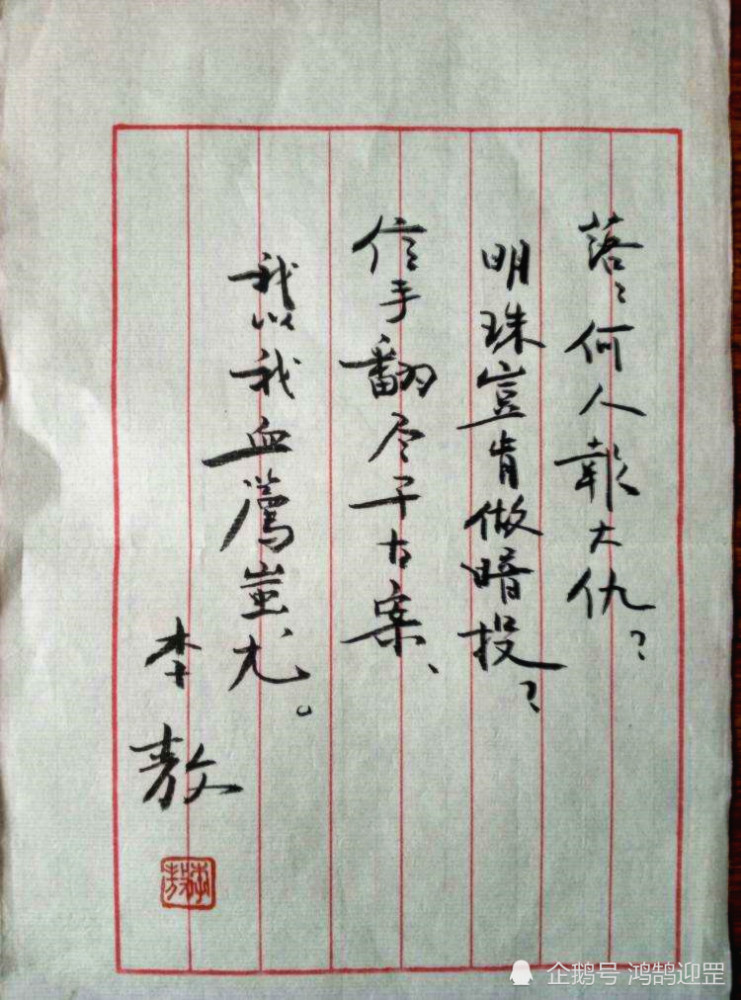 落々何人報大仇？
明珠豈肯做暗投？
信手翻尽千古案、
我以我血薦蚩尤。
李敖
李敖
企鹅号 鸿鹄迎罡